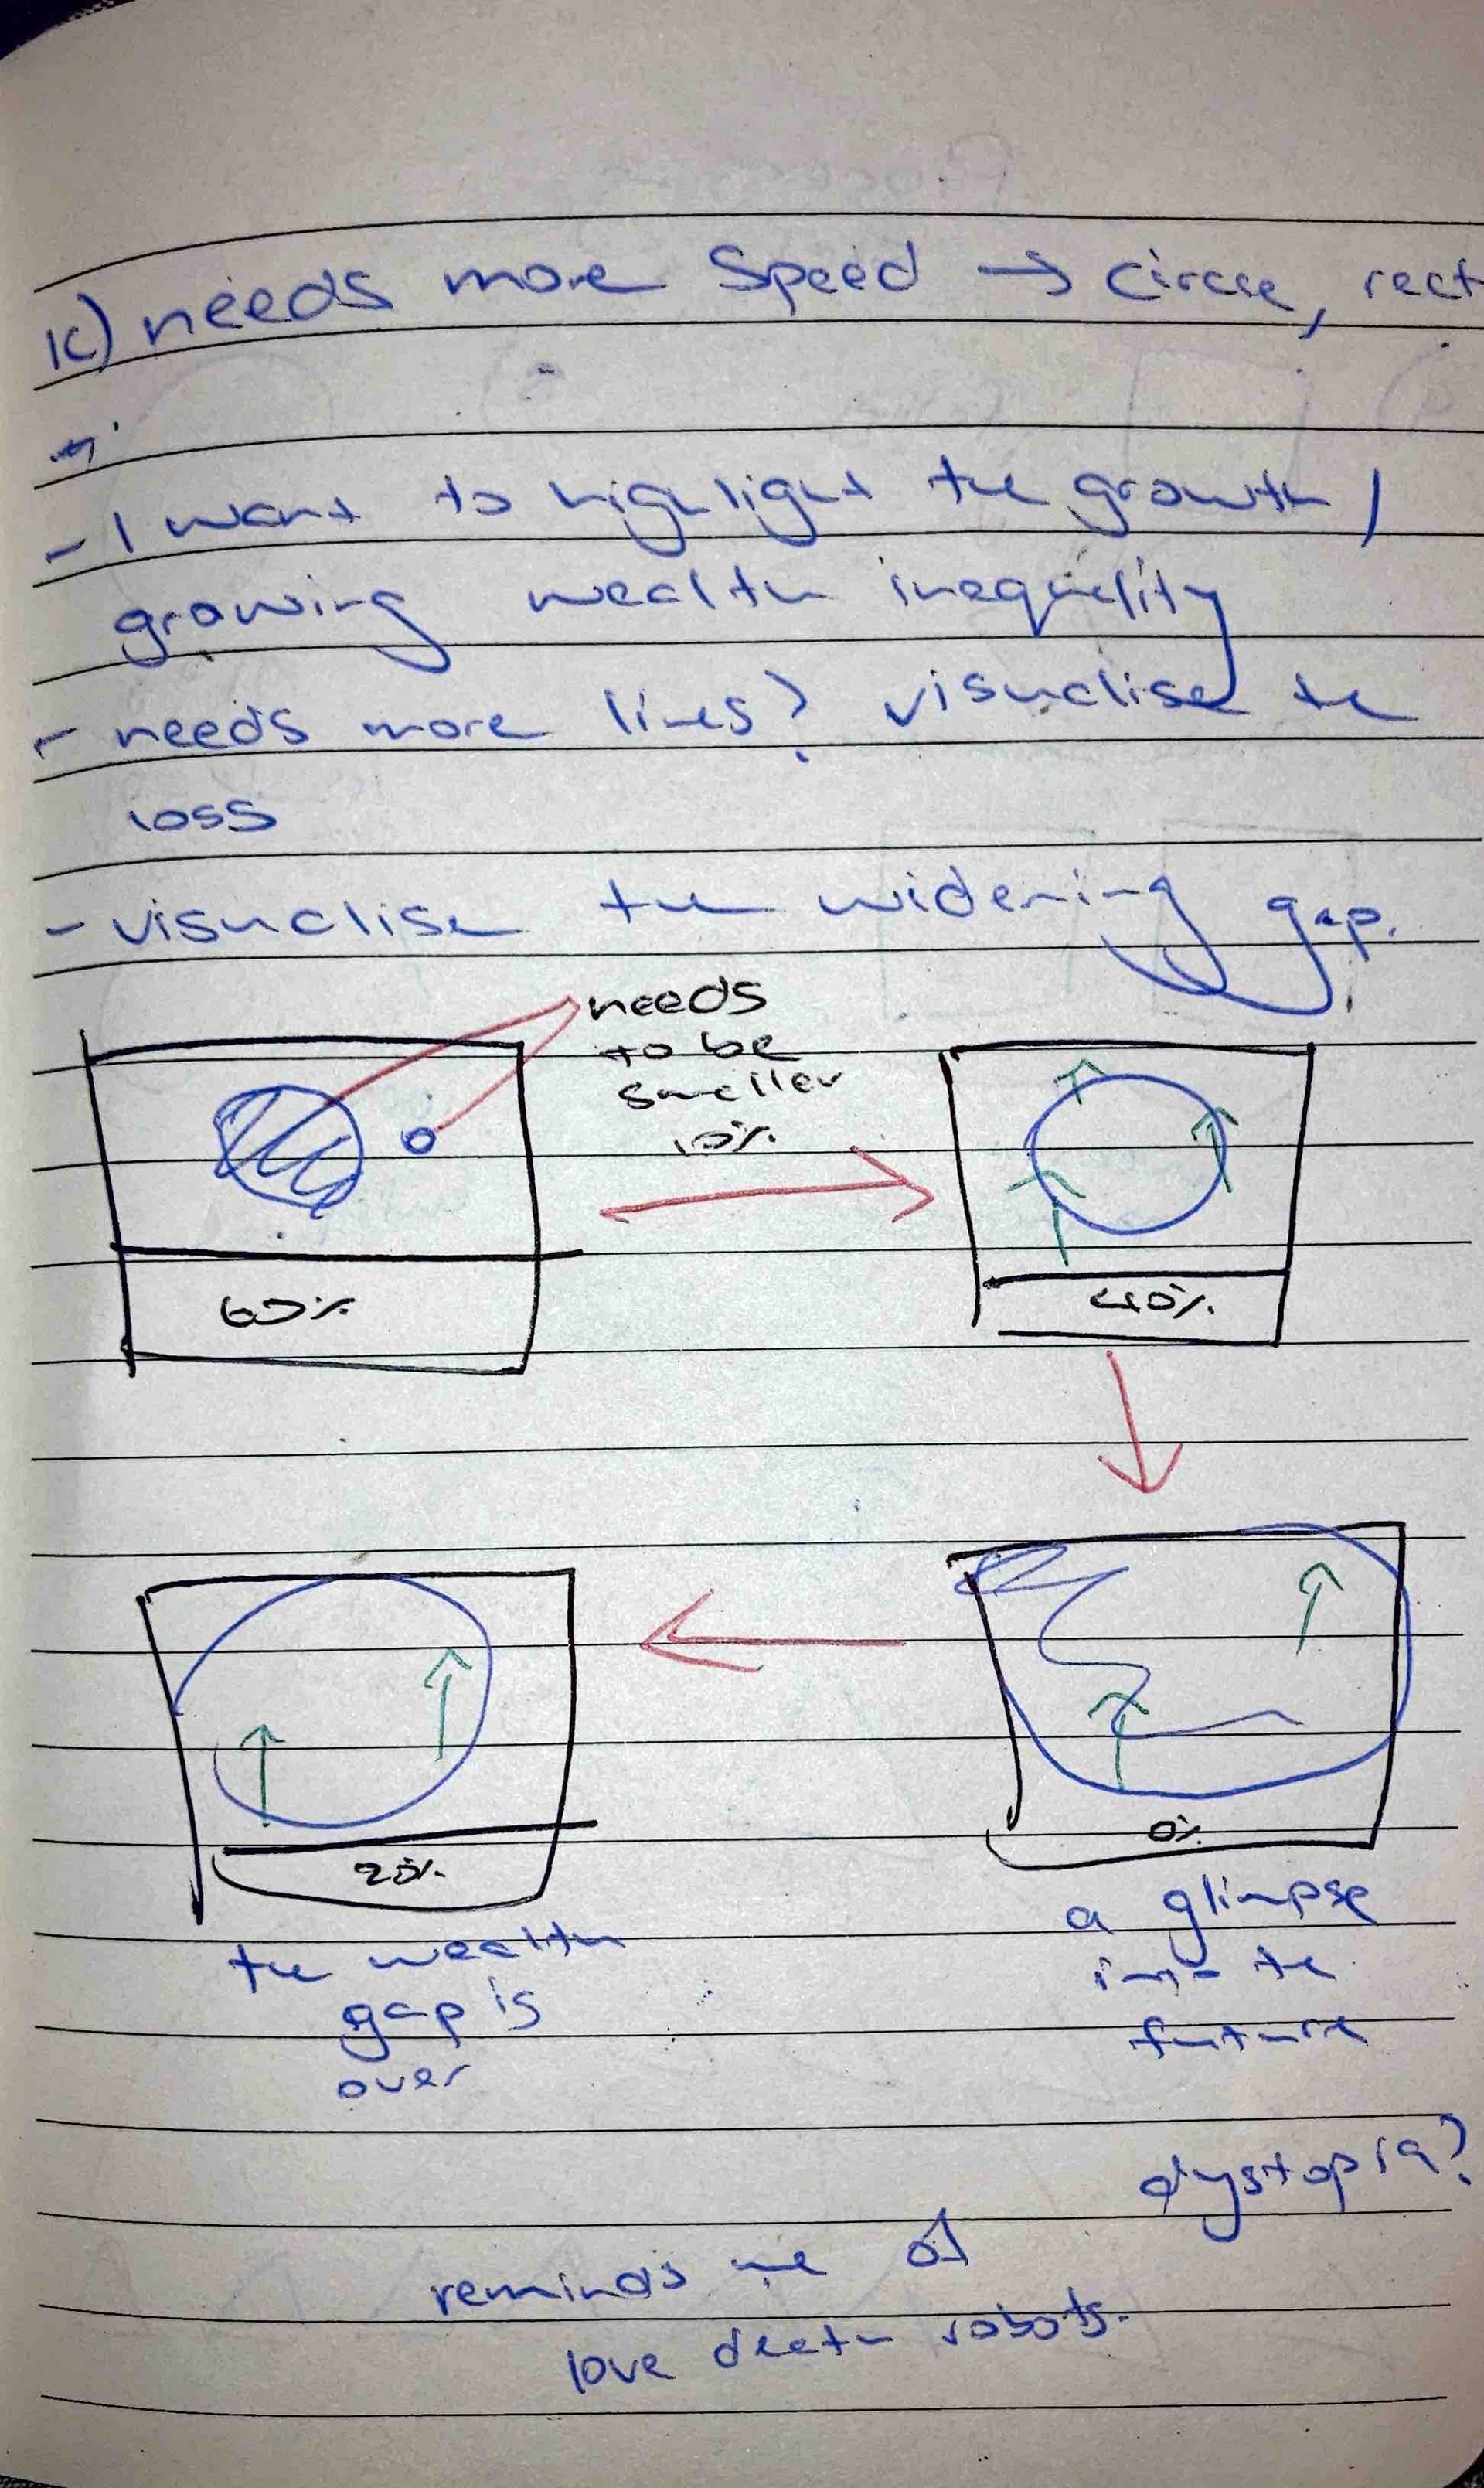 k) needs more speed → circle, rect
- I want to highlight the growth /
growing wealth inequality
- needs more lines? visualise the
loss
- visualise the widening gap.
needs
to be
smaller
10%
60%
40%
20%
0%
the wealth
gap is
over
a glimpse
into the
future
dystopia?
reminds me of
love death robots.